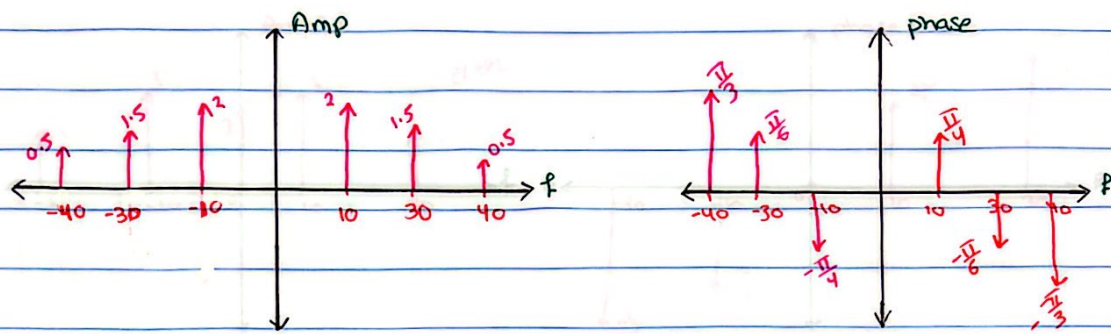 Amp
2
1.5
0.5
2
1.5
0.5
-40 -30 -10 10 30 40 f
phase
π/3
π/6
π/4
-40 -30 -10 10 30 40 f
-π/4
-π/6
-π/3